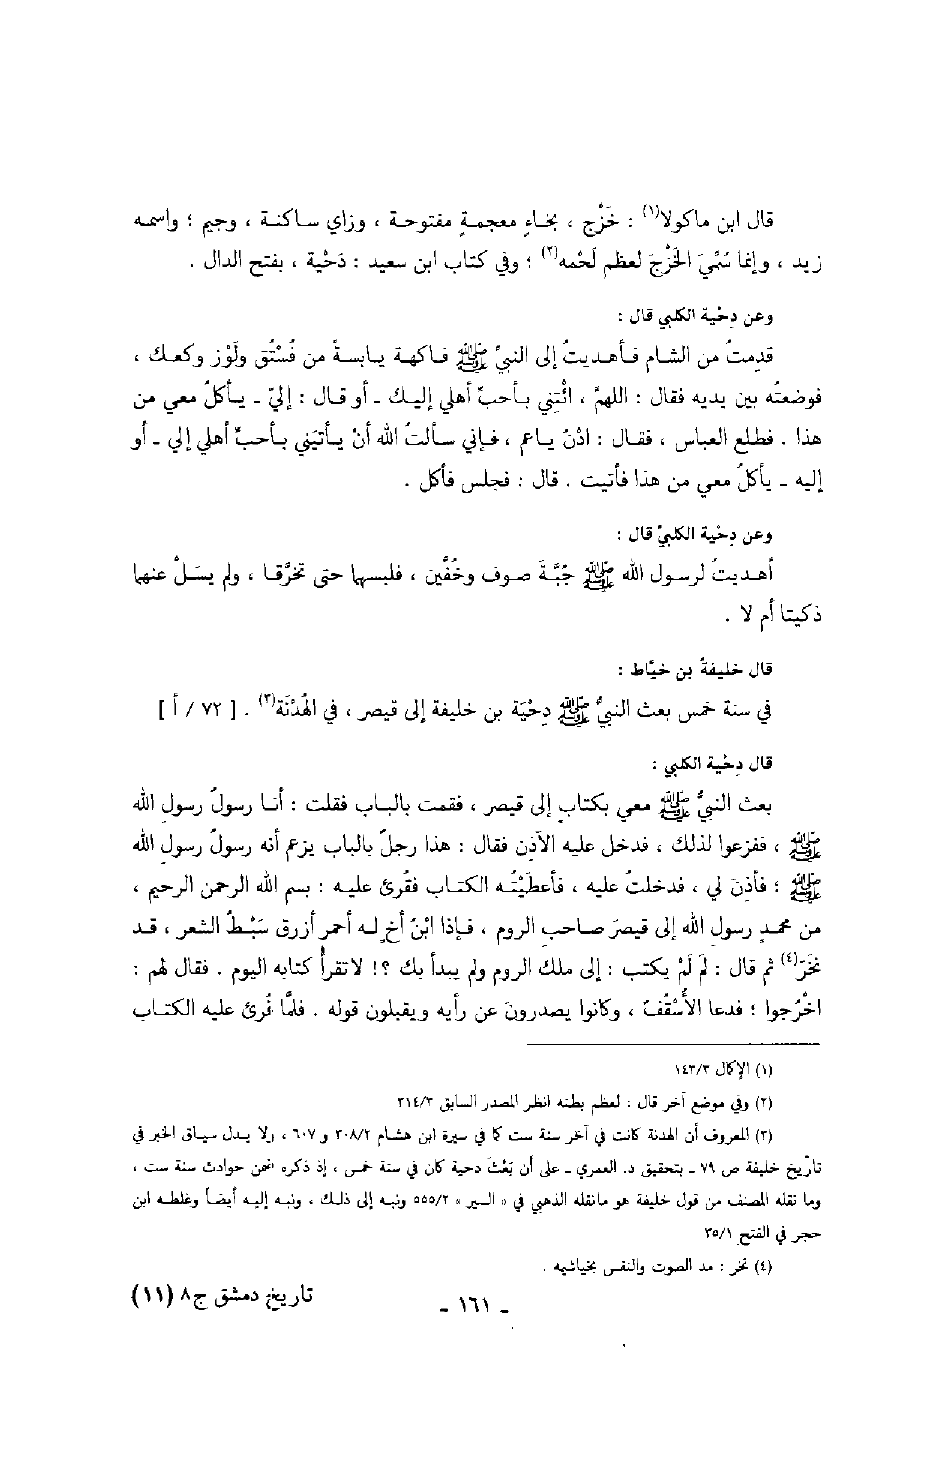 قال ابن ماكولا(١) : خَزْج ، بخاءٍ معجمةٍ مفتوحة ، وزاي ساكنة ، وجيم ؛ واسمه
زيد ، وإنما سُمِّيَ الخَزْجَ لعظم لَحْمه(٢) ؛ وفي كتاب ابن سعيد : دَحْية ، بفتح الدال .
وعن دِحْية الكلبي قال :
قدِمتُ من الشام فأهديتُ إلى النبيِّ ﷺ فاكهة يابسةً من فُسْتُق ولَوْز وكعك ،
فوضعتُه بين يديه فقال : اللهمّ ، ائْتِني بأحبِّ أهلي إليك ـ أو قال : إليّ ـ يأكلُ معي من
هذا . فطلع العباس ، فقال : ادْنُ ياعم ، فإني سألتُ الله أنْ يأتيَني بأحبِّ أهلي إلي ـ أو
إليه ـ يأكلُ معي من هذا فأتيت . قال : فجلس فأكل .
وعن دِحْية الكلبيّ قال :
أهديتُ لرسول الله ﷺ جُبَّةَ صوف وخُفَّين ، فلبسها حتى تخرَّقا ، ولم يسَلْ عنهما
ذكيتا أم لا .
قال خليفةُ بن خيَّاط :
في سنة خمس بعث النبيُّ ﷺ دِحْيَة بن خليفة إلى قيصر ، في الهُدْنَة(٣) . [ ٧٢ / أ ]
قال دِحْية الكلبي :
بعث النبيُّ ﷺ معي بكتابٍ إلى قيصر ، فقمت بالباب فقلت : أنا رسولُ رسولِ الله
ﷺ ، ففزعوا لذلك ، فدخل عليه الآذِن فقال : هذا رجلٌ بالباب يزعم أنه رسولُ رسولِ الله
ﷺ ؛ فأذِنَ لي ، فدخلتُ عليه ، فأعطَيْتُه الكتاب فقُرئ عليه : بسم الله الرحمن الرحيم ،
من محمدٍ رسول الله إلى قيصرَ صاحبِ الروم ، فإذا ابْنُ أخٍ له أحمر أزرق سَبْطُ الشعر ، قد
نخَرَ(٤) ثم قال : لِمَ لَمْ يكتب : إلى ملك الروم ولم يبدأ بك ؟! لاتقرأ كتابه اليوم . فقال لهم :
اخْرُجوا ؛ فدعا الأُسْقُفّ ، وكانوا يصدرونَ عن رأيه ويقبلون قوله . فلمَّا قُرئ عليه الكتاب
(١) الإكمال ١٤٣/٣
(٢) وفي موضع آخر قال : لعظم بطنه انظر المصدر السابق ٣١٤/٣
(٣) المعروف أن الهدنة كانت في آخر سنة ست كما في سيرة ابن هشام ٣٠٨/٢ و ٦٠٧ ، ولا يدل سياق الخبر في
تاريخ خليفة ص ٧٩ ـ بتحقيق د. العمري ـ على أن بَعْثَ دحية كان في سنة خمس ، إذ ذكره ضمن حوادث سنة ست ،
وما نقله المصنف من قول خليفة هو مانقله الذهبي في « السير » ٥٥٥/٢ ونبه إلى ذلك ، ونبه إليه أيضاً وغلطه ابن
حجر في الفتح ٣٥/١
(٤) نخر : مد الصوت والنفس بخياشيمه .
ـ ١٦١ ـ
تاريخ دمشق ج٨ (١١)